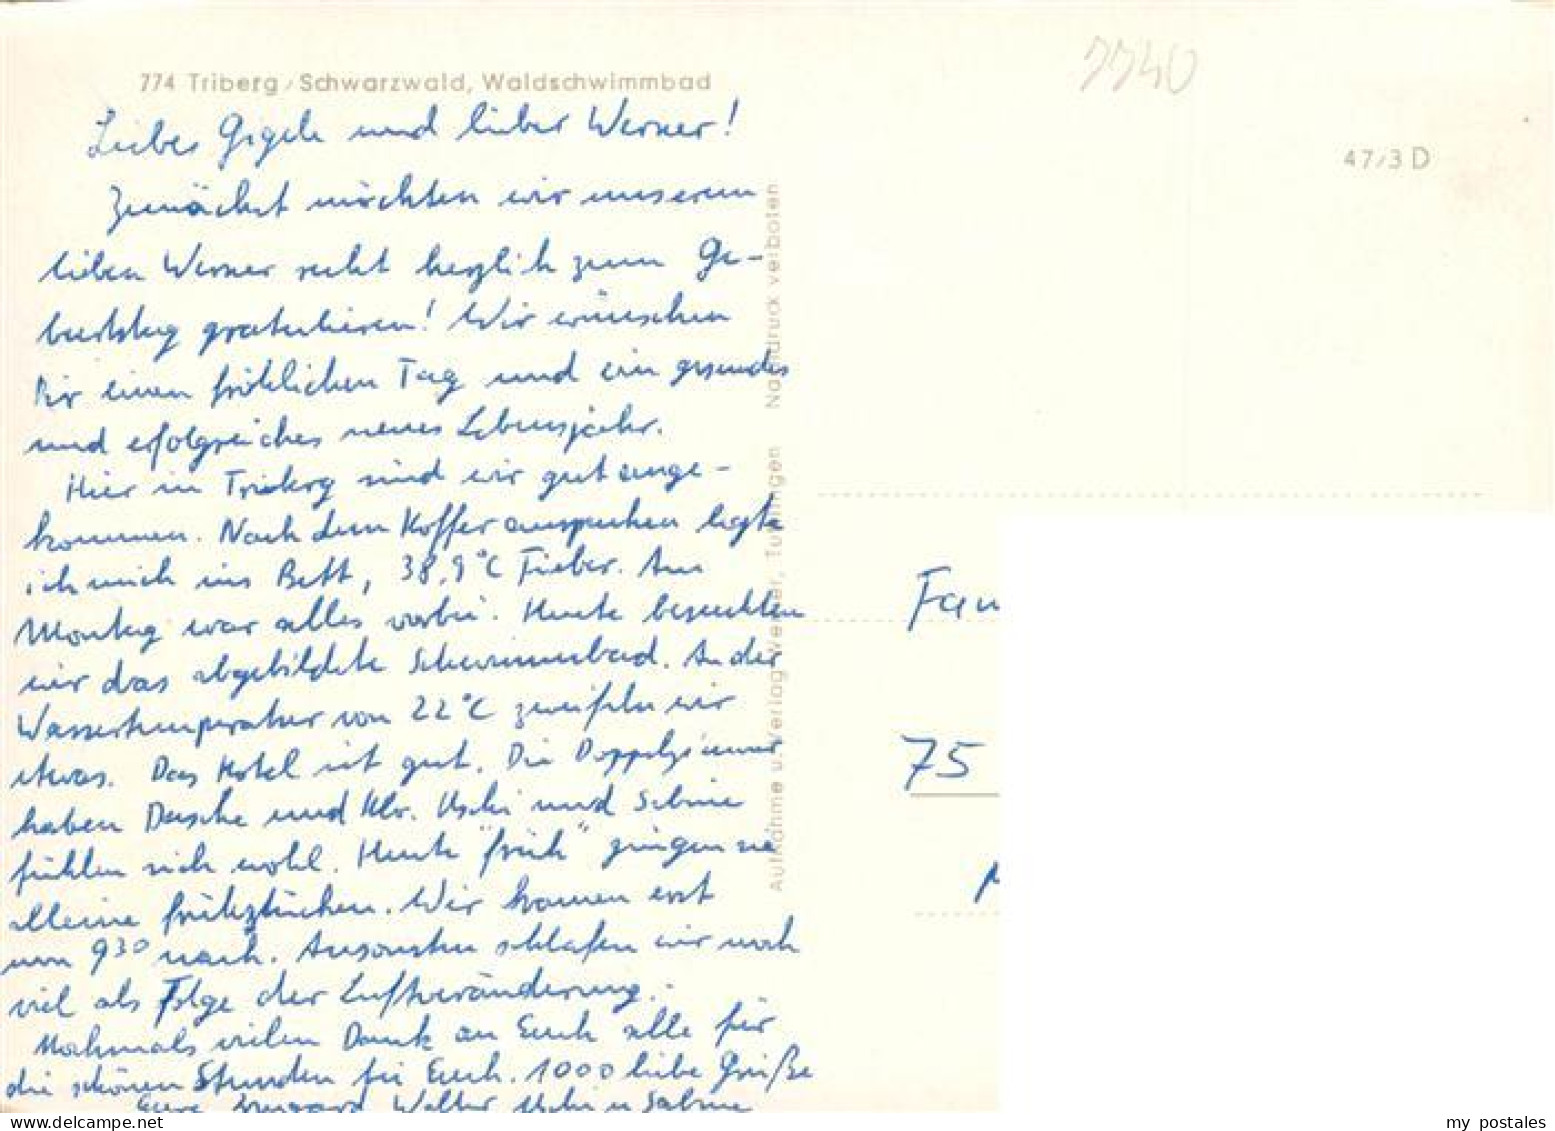 774 Triberg/Schwarzwald, Waldschwimmbad
7740
47/3 D
Liebes Gigele und lieber Werner!
Zunächst möchten wir unserem
lieben Werner recht herzlich zum Ge-
burtstag gratulieren! Wir wünschen
Dir einen fröhlichen Tag und ein gesundes
und erfolgreiches neues Lebensjahr.
Hier in Triberg sind wir gut ange-
kommen. Nach dem Kofferauspacken legte
ich mich ins Bett, 38,9°C Fieber. Am
Montag war alles vorbei. Heute besuchten
wir das abgebildete Schwimmbad. An der
Wassertemperatur von 22°C zweifeln wir
etwas. Das Hotel ist gut. Die Doppelzimmer
haben Dusche und Klo. Uschi und Sabine
fühlen sich wohl. Heute "früh" gingen sie
alleine frühstücken. Wir kamen erst
um 9³⁰ nach. Ansonsten schlafen wir noch
viel als Folge der Luftveränderung.
Nochmals vielen Dank an Euch alle für
die schönen Stunden bei Euch. 1000 liebe Grüße
Eure Irmgard, Walter, Uschi u Sabine
Aufnahme u. Verlag Werner, Tuttlingen Nachdruck verboten
Fam
75
my postales
delcampe.net